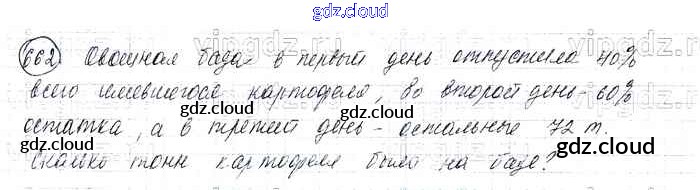 gdz.cloud
662 Овощная база в первый день отпустила 40%
всего имевшегося картофеля, во второй день - 60%
gdz.cloud gdz.cloud
остатка, а в третий день - остальные 72 т.
gdz.cloud
Сколько тонн картофеля было на базе?
gdz.cloud